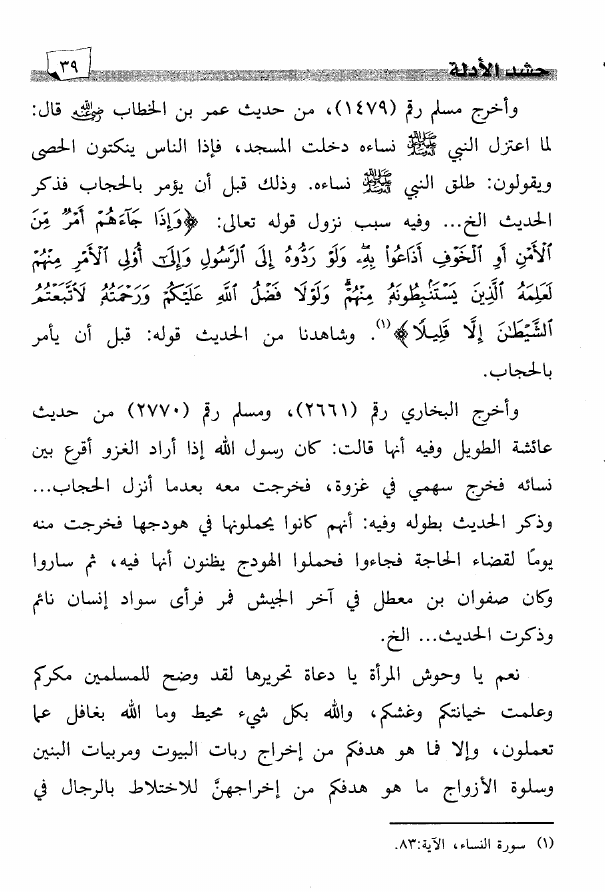 حشد الأدلة ٣٩
وأخرج مسلم رقم (١٤٧٩)، من حديث عمر بن الخطاب رضي الله عنه قال:
لما اعتزل النبي ﷺ نساءه دخلت المسجد، فإذا الناس ينكتون الحصى
ويقولون: طلق النبي ﷺ نساءه. وذلك قبل أن يؤمر بالحجاب فذكر
الحديث الخ... وفيه سبب نزول قوله تعالى: ﴿وَإِذَا جَاءَهُمْ أَمْرٌ مِّنَ
الْأَمْنِ أَوِ الْخَوْفِ أَذَاعُوا بِهِ ۖ وَلَوْ رَدُّوهُ إِلَى الرَّسُولِ وَإِلَىٰ أُولِي الْأَمْرِ مِنْهُمْ
لَعَلِمَهُ الَّذِينَ يَسْتَنبِطُونَهُ مِنْهُمْ ۗ وَلَوْلَا فَضْلُ اللَّهِ عَلَيْكُمْ وَرَحْمَتُهُ لَاتَّبَعْتُمُ
الشَّيْطَانَ إِلَّا قَلِيلًا﴾(١). وشاهدنا من الحديث قوله: قبل أن يأمر
بالحجاب.
وأخرج البخاري رقم (٢٦٦١)، ومسلم رقم (٢٧٧٠) من حديث
عائشة الطويل وفيه أنها قالت: كان رسول الله إذا أراد الغزو أقرع بين
نسائه فخرج سهمي في غزوة، فخرجت معه بعدما أنزل الحجاب...
وذكر الحديث بطوله وفيه: أنهم كانوا يحملونها في هودجها فخرجت منه
يومًا لقضاء الحاجة فجاءوا فحملوا الهودج يظنون أنها فيه، ثم ساروا
وكان صفوان بن معطل في آخر الجيش فمر فرأى سواد إنسان نائم
وذكرت الحديث... الخ.
نعم يا وحوش المرأة يا دعاة تحريرها لقد وضح للمسلمين مكركم
وعلمت خيانتكم وغشكم، والله بكل شيء محيط وما الله بغافل عما
تعملون، وإلا فما هو هدفكم من إخراج ربات البيوت ومربيات البنين
وسلوة الأزواج ما هو هدفكم من إخراجهنَّ للاختلاط بالرجال في
(١) سورة النساء، الآية:٨٣.